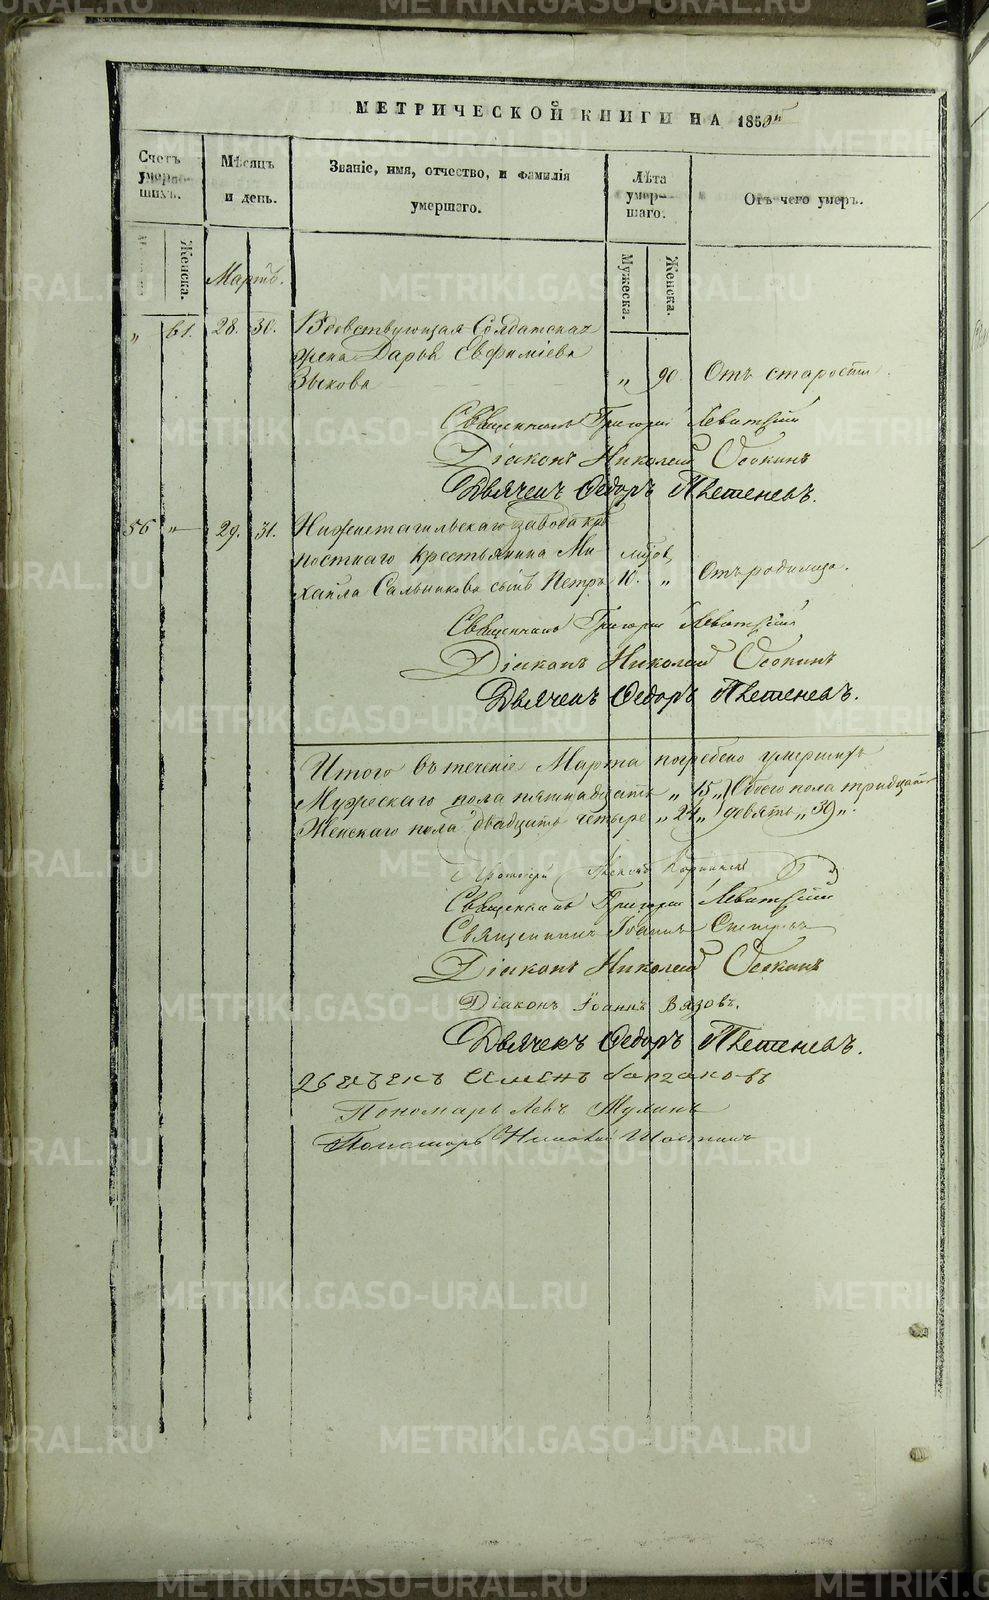 МЕТРИЧЕСКОЙ КНИГИ НА 185
Счетъ умерших.
Мѣсяцъ и день.
Званіе, имя, отчество, и фамилія умершаго.
Лѣта умершаго.
Отъ чего умеръ.
Женска.
Мужеска.
Женска.
Мартъ.
„ 61. 28. 30. Вдовствующая Солдатская
жена Дарья Евфиміева
Зыкова „ 90. Отъ старости.
Священникъ Григорій Левитскій
Діаконъ Николай Осокинъ
Дьячекъ Ѳедоръ
56 „ 29. 31. Нижнетагильскаго завода крѣ
постнаго крестьянина Ми
хаила Сальникова сынъ Петръ 10. „ Отъ родимца.
Священникъ Григорій Левитскій
Діаконъ Николай Осокинъ
Дьячекъ Ѳедоръ
Итого въ теченіе Марта погребено умершихъ
Мужескаго пола пятнадцать „ 15 „ Обоего пола тридцать
Женскаго пола двадцать четыре „ 24 „ девять „ 39 „.
Священникъ Григорій Левитскій
Священникъ Іоаннъ
Діаконъ Николай Осокинъ
Діаконъ Іоаннъ Вязовъ.
Дьячекъ Ѳедоръ
Пономарь Левъ
Пономарь Николай
METRIKI.GASO-URAL.RU